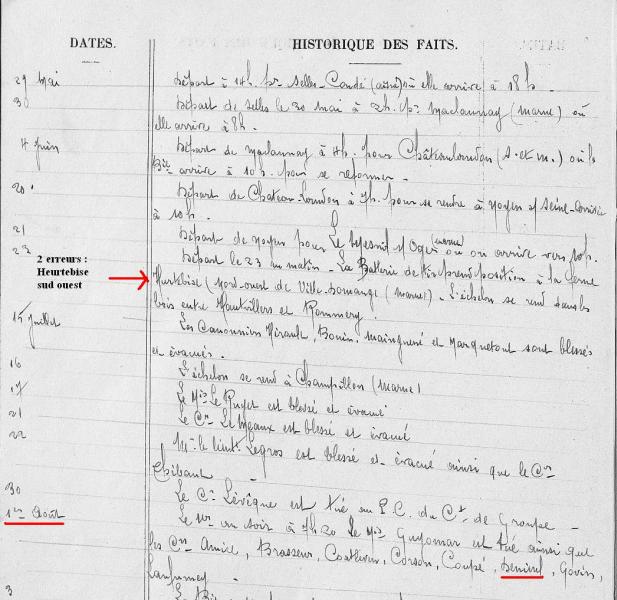 DATES. HISTORIQUE DES FAITS.
29 Mai Départ à 14h. pr Selles-Condé (aisne) où elle arrive à 18h.
30 Départ de Selles le 30 Mai à 2h. pr Maclaunay (Marne) où
elle arrive à 8h.
4 Juin Départ de Maclaunay à 4h. pour Châteaulandon (S. et M.) où la
Bie arrive à 10h. pour se reformer -
20 Départ de Chateau-Landon à 7h. pour se rendre à Noyen s/ Seine
à 10h.
21 Départ de Noyen pour Le Mesnil s/ Oger (Marne) où on arrive vers 10h.
23 Départ le 23 au matin - La Batterie de tir prend position à la ferme
2 erreurs :
Heurtebise
sud ouest
Hurtebise (Nord-ouest de Ville-Domange (Marne) - L'échelon se rend dans les
bois entre Hautvillers et Rommery.
15 Juillet Les Canonniers Hirault, Bonin, Mainguené et Marquetout sont blessés
et évacués.
16 L'échelon se rend à Champillon (Marne)
17 Le Mis Le Puyet est blessé et évacué
21 Le Cr Le Meaux est blessé et évacué
22 Mr. le lieut. Legros est blessé et évacué ainsi que le Cer
Thibaut -
30 Le Cr Lévêque est tué au P.C. du Ct de Groupe -
1er Août Le 1er au soir à 7h20 le Mis Guyomar est tué ainsi que
les Cers Amice, Brasseur, Corson, Coupé, Denieul, Govin,
3